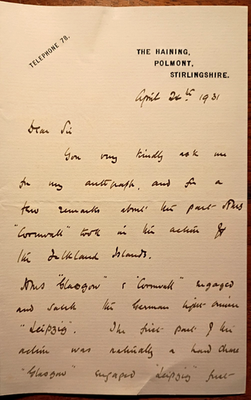 TELEPHONE 78.
THE HAINING,
POLMONT,
STIRLINGSHIRE.
April 24th 1931
Dear Sir
You very kindly ask me
for my autograph, and for a
few remarks about the part HMS
"Cornwall" took in the action off
the Falkland Islands.
HMS "Glasgow" & "Cornwall" engaged
and sank the German light cruiser
"Leipzig". The first part of the
action was naturally a hard chase
"Glasgow" engaged "Leipzig" first